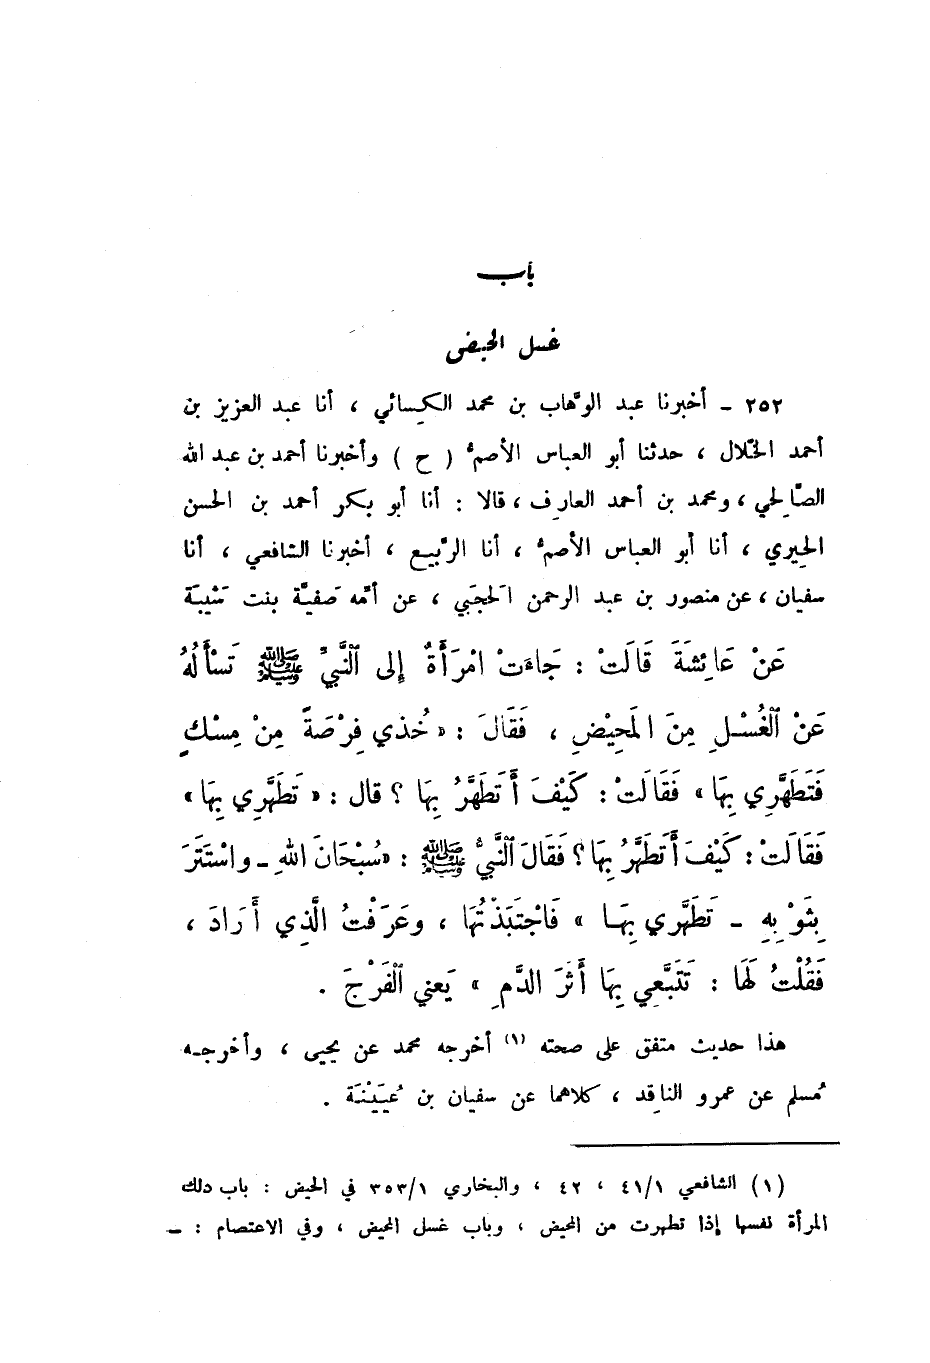 باب
غسل الحيض
٢٥٢ ـ أخبرنا عبد الوهّاب بن محمد الكِسائي ، أنا عبد العزيز بن
أحمد الخلّال ، حدثنا أبو العباس الأصمُّ ( ح ) وأخبرنا أحمد بن عبد الله
الصّالِحي ، ومحمد بن أحمد العارِف ، قالا : أنا أبو بكر أحمد بن الحسن
الحِيري ، أنا أبو العباس الأصمُّ ، أنا الرّبيع ، أخبرنا الشافعي ، أنا
سفيان ، عن منصور بن عبد الرحمن الحَجَبي ، عن أمِّه صَفيَّة بنت شَيْبَة
عَنْ عَائِشَةَ قَالَتْ : جَاءَتْ امْرَأَةٌ إِلى النَّبيِّ ﷺ تَسْأَلُهُ
عَنْ الغُسْلِ مِنَ المَحِيْضِ ، فَقَالَ : « خُذي فِرْصَةً مِنْ مِسْكٍ
فَتَطَهَّرِي بِهَا » فَقَالَتْ : كَيْفَ أَتَطَهَّرُ بِهَا ؟ قال : « تَطَهَّرِي بِهَا »
فَقَالَتْ : كَيْفَ أَتَطَهَّرُ بِهَا ؟ فَقَالَ النَّبيُّ ﷺ : « سُبْحَانَ اللهِ ـ واسْتَتَرَ
بِثَوْبِهِ ـ تَطَهَّري بِهَا » فَاجْتَبَذْتُهَا ، وعَرَفْتُ الَّذِي أَرَادَ ،
فَقُلْتُ لَهَا : تَتَبَّعِي بِهَا أَثَرَ الدَّمِ » يَعني الفَرْجَ .
هذا حديث متفق على صحته (١) أخرجه محمد عن يحيى ، وأخرجه
مُسلم عن عمرو الناقِد ، كلاهما عن سفيان بن عُيَيْنَة .
(١) الشافعي ٤١/١ ، ٤٢ ، والبخاري ٣٥٣/١ في الحيض : باب دلك
المرأة نفسها إذا تطهرت من المحيض ، وباب غسل المحيض ، وفي الاعتصام : ـ